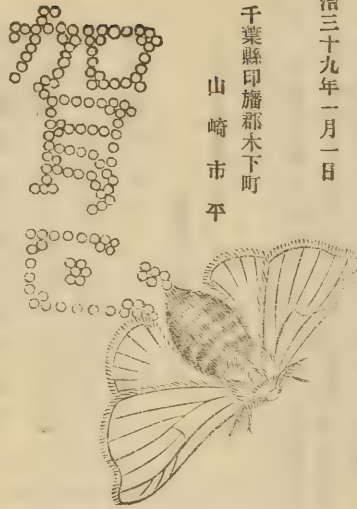 治三十九年一月一日
千葉縣印旛郡木下町
山崎市平
賀